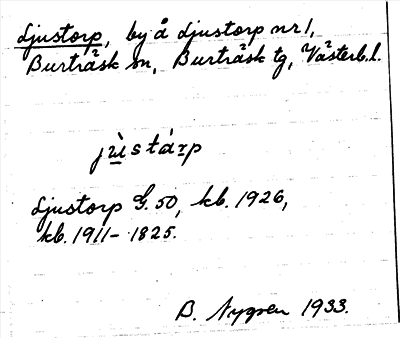 Ljustorp, by å Ljustorp nr 1,
Burträsk sn, Burträsk tg, Västerb.l.
jùstárp
Ljustorp G. 50, kb. 1926,
kb. 1911-1825.
B. Nygren 1933.